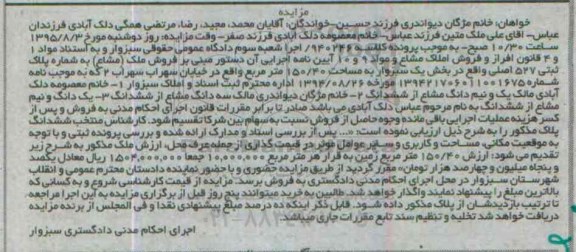 مزایده
خواهان: خانم مژگان دیواندری فرزند حسین- خواندگان: آقایان محمد، مجید، رضا، مرتضی همگی دلک آبادی فرزندان
عباس- آقای علی ملک متین فرزند عباس- خانم معصومه دلک آبادی فرزند صفر- وقت مزایده: روز دوشنبه مورخ ۱۳۹۵/۸/۳
ساعت ۱۰/۳۰ صبح- به موجب پرونده کلاسه ۹۴۰۲۴۶ اجرا شعبه سوم دادگاه عمومی حقوقی سبزوار و به استناد مواد ۱
و ۴ قانون افراز و فروش املاک مشاع و مواد ۹ و ۱۰ آیین نامه اجرایی آن دستور مبنی بر فروش ملک (مشاع) به شماره پلاک
ثبتی ۵۲۷ اصلی واقع در بخش یک سبزوار به مساحت ۱۵۰/۴۰ متر مربع واقع در خیابان سهراب سهراب ۲ که به موجب نامه
شماره مورخه ۱۳۹۴/۰۸/۲۶ اداره محترم ثبت اسناد و املاک سبزوار ۱- خانم معصومه دلک
آبادی مالک یک و نیم دانگ مشاع از ششدانگ ۲- خانم مژگان دیواندری مالک سه دانگ مشاع از ششدانگ ۳- یک دانگ و نیم
مشاع از ششدانگ به نام مرحوم عباس دلک آبادی می باشد صادر تا برابر مقررات قانون اجرای احکام مدنی به فروش و پس از
کسر هزینه عملیات اجرایی باقی مانده وجوه حاصل از فروش نسبت به سهام بین شرکا تقسیم شود. کارشناس منتخب ششدانگ
پلاک مذکور را به شرح ذیل ارزیابی نموده است: «... پس از بررسی اسناد و مدارک ارائه شده و بررسی پرونده ثبتی و با توجه
به موقعیت مکانی، مساحت و کاربری و سایر عوامل موثر در قیمت گذاری از جمله عرف محل، ارزش ملک مذکور به شرح زیر
تقدیم می شود: ارزش ۱۵۰/۴۰ متر مربع زمین به قرار هر متر مربع ۱۰.۰۰۰.۰۰۰ جمعا ۱.۵۰۴.۰۰۰.۰۰۰ ریال معادل یکصد
و پنجاه میلیون و چهارصد هزار تومان» مقرر گردید از طریق مزایده حضوری و با حضور نماینده دادستان محترم عمومی و انقلاب
شهرستان سبزوار در محل اجرای احکام مدنی دادگستری به فروش برسد. مزایده از قیمت کارشناسی شروع و به کسانی که
بالاترین مبلغ را پیشنهاد نمایند واگذار خواهد شد. طالبین به خرید میتوانند پنج روز قبل از برگزاری مزایده به این اجرا مراجعه،
تا ترتیب بازدیدشان از پلاک مذکور داده شود. قابل ذکر اینکه ده درصد مبلغ پیشنهادی نقدا و فی المجلس از برنده مزایده
دریافت خواهد شد تخلیه و تنظیم سند تابع مقررات جاری میباشد.
اجرای احکام مدنی دادگستری سبزوار